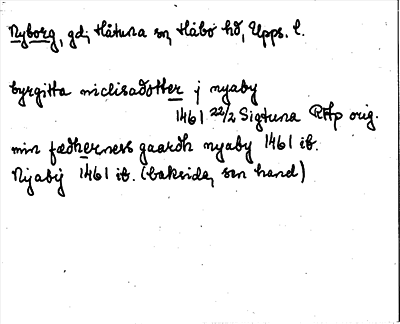 Nyborg, gd, Håtuna sn, Håbo hd, Upps. l.
byrgitta niclisadotter j nyaby
1461 22/2 Sigtuna RAp orig.
min fædherness gaardh nyaby 1461 ib.
Nyaby 1461 ib. (baksida, sen hand)